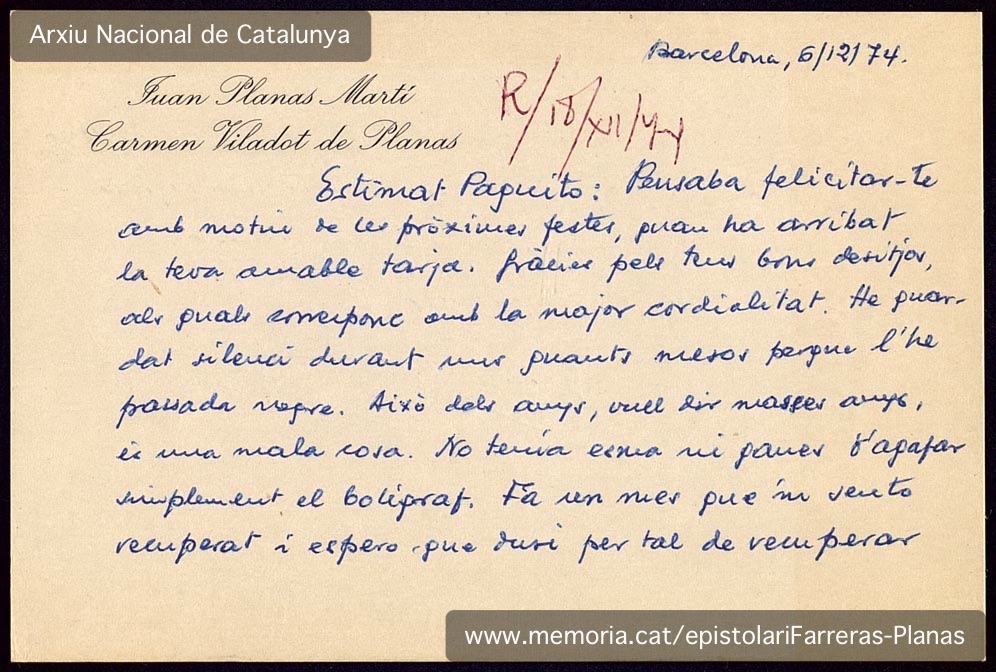 Arxiu Nacional de Catalunya
Barcelona, 6/12/74.
Juan Planas Martí
Carmen Viladot de Planas
R/18/XII/74
Estimat Paquito: Pensaba felicitar-te
amb motiu de les pròximes festes, quan ha arribat
la teva amable tarja. Gràcies pels teus bons desitjos,
als quals correeponc amb la major cordialitat. He guar-
dat silenci durant uns quants mesos perque l'he
passada negre. Això dels anys, vull dir masses anys,
és una mala cosa. No tenía esma ni ganes d'agafar
simplement el bolígraf. Fa un mes que m sento
recuperat i espero que duri per tal de recuperar
www.memoria.cat/epistolariFarreras-Planas